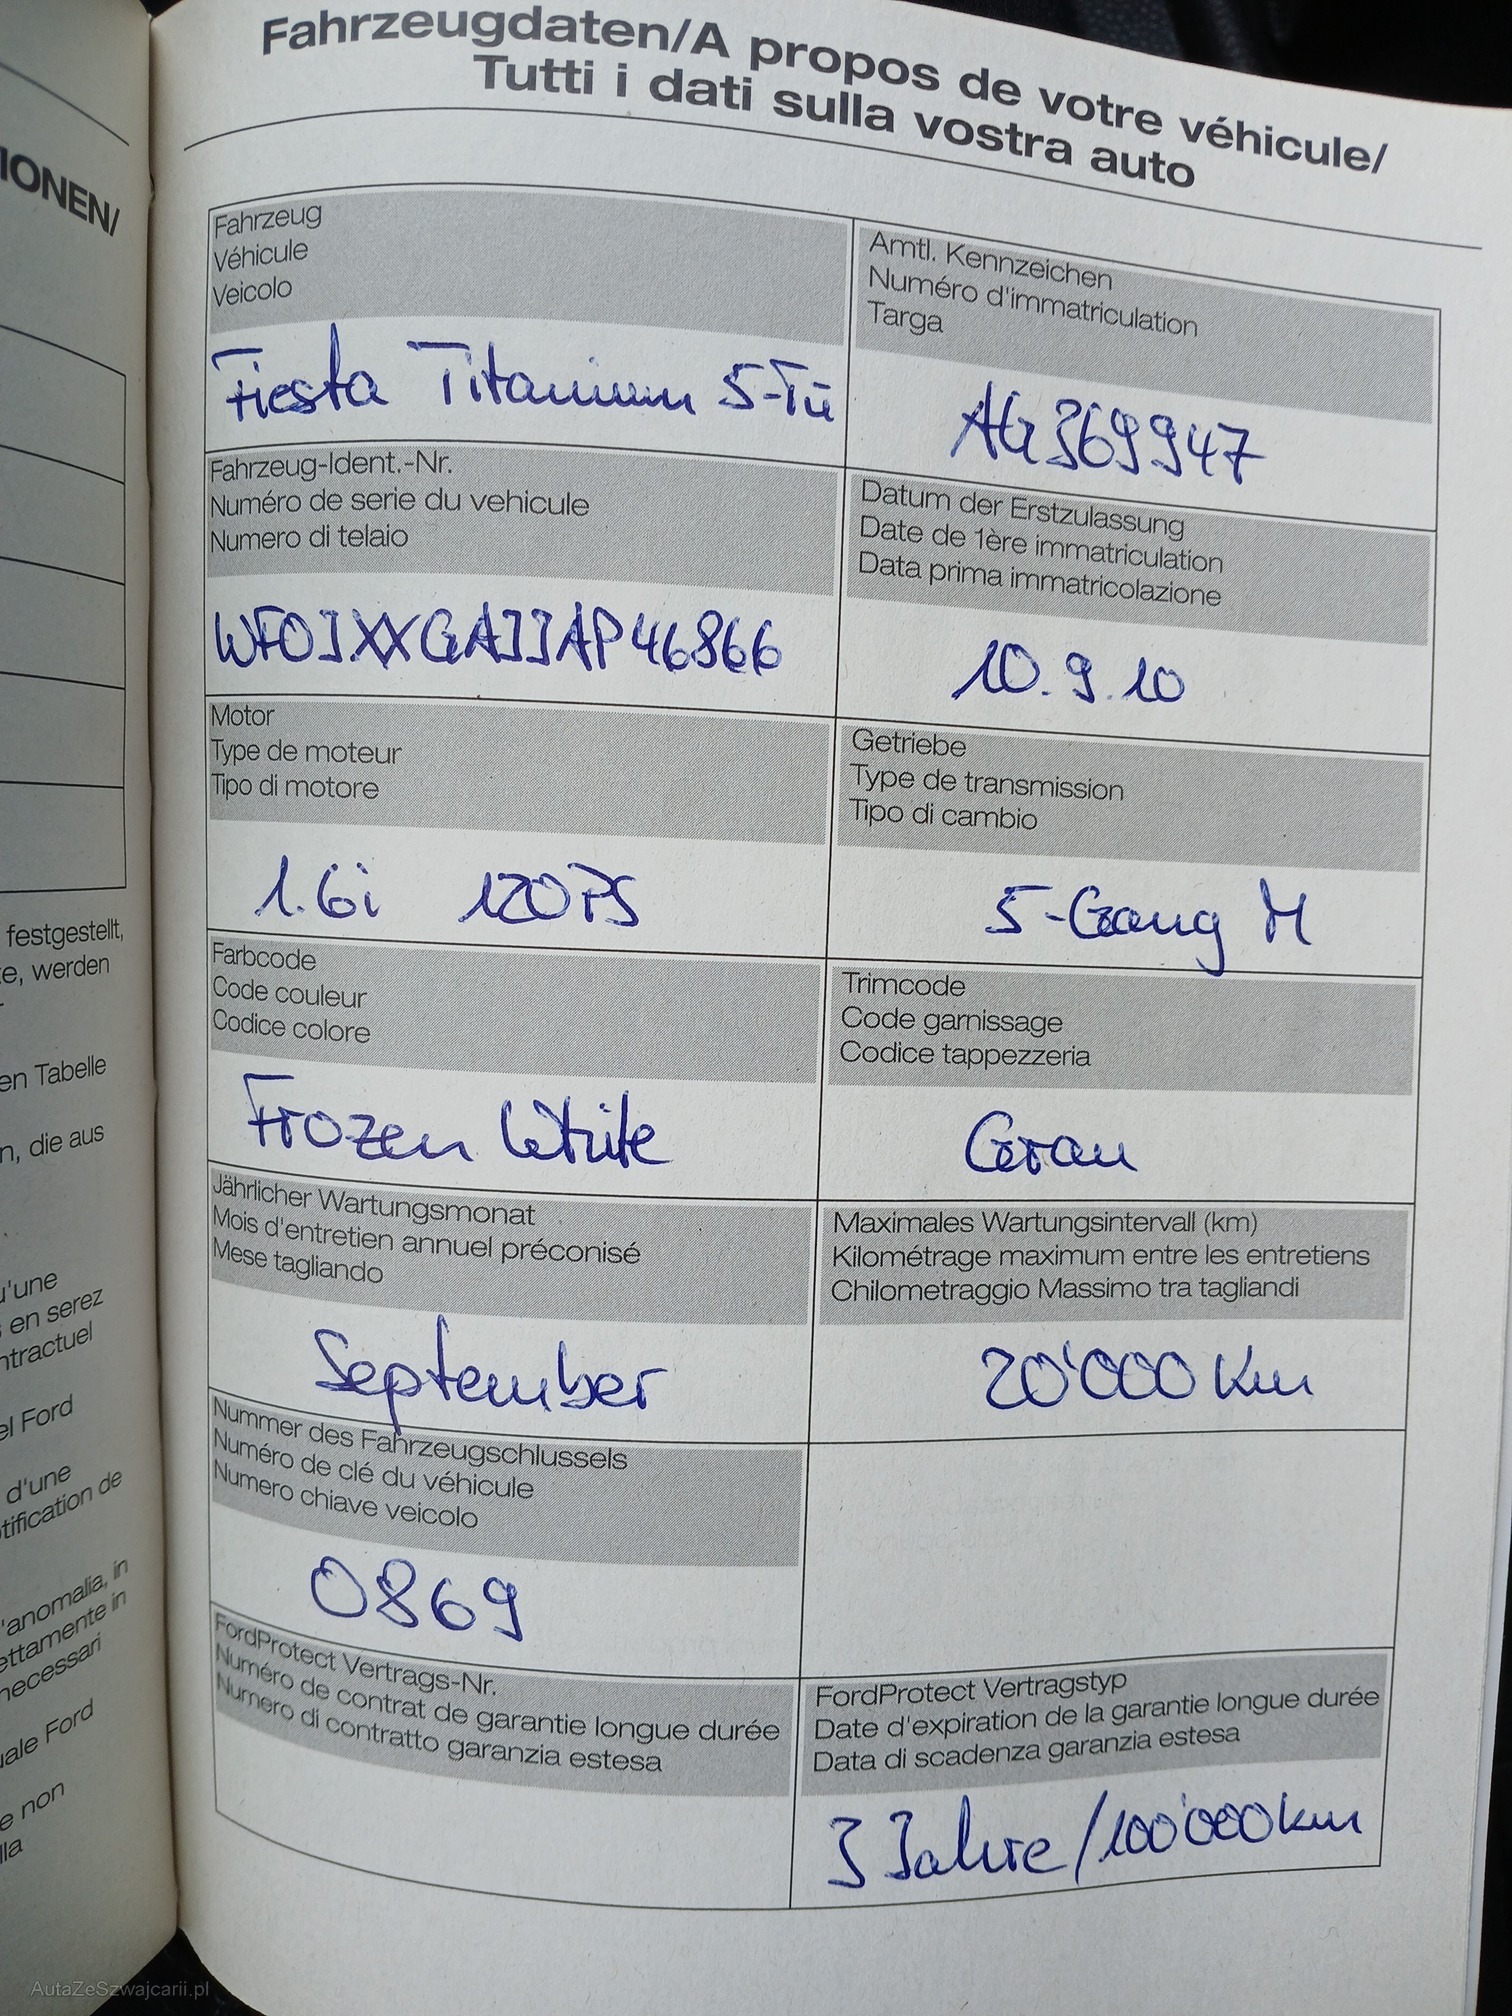 IONEN/
festgestellt,
te, werden
en Tabelle
n, die aus
u'une
s en serez
ntractuel
el Ford
d'une
otification de
'anomalia, in
ettamente in
necessari
uale Ford
e non
lla
Fahrzeugdaten/A propos de votre véhicule/
Tutti i dati sulla vostra auto
Fahrzeug
Véhicule
Veicolo
Fiesta Titanium 5-Tü
Amtl. Kennzeichen
Numéro d'immatriculation
Targa
AG369947
Fahrzeug-Ident.-Nr.
Numéro de serie du vehicule
Numero di telaio
WF0JXXGAJJAP46866
Datum der Erstzulassung
Date de 1ère immatriculation
Data prima immatricolazione
10.9.10
Motor
Type de moteur
Tipo di motore
1.6i 120PS
Getriebe
Type de transmission
Tipo di cambio
5-Gang M
Farbcode
Code couleur
Codice colore
Frozen White
Trimcode
Code garnissage
Codice tappezzeria
Grau
Jährlicher Wartungsmonat
Mois d'entretien annuel préconisé
Mese tagliando
September
Maximales Wartungsintervall (km)
Kilométrage maximum entre les entretiens
Chilometraggio Massimo tra tagliandi
20'000 Km
Nummer des Fahrzeugschlussels
Numéro de clé du véhicule
Numero chiave veicolo
0869
FordProtect Vertrags-Nr.
Numéro de contrat de garantie longue durée
Numero di contratto garanzia estesa
FordProtect Vertragstyp
Date d'expiration de la garantie longue durée
Data di scadenza garanzia estesa
3 Jahre/100'000km
AutaZeSzwajcarii.pl